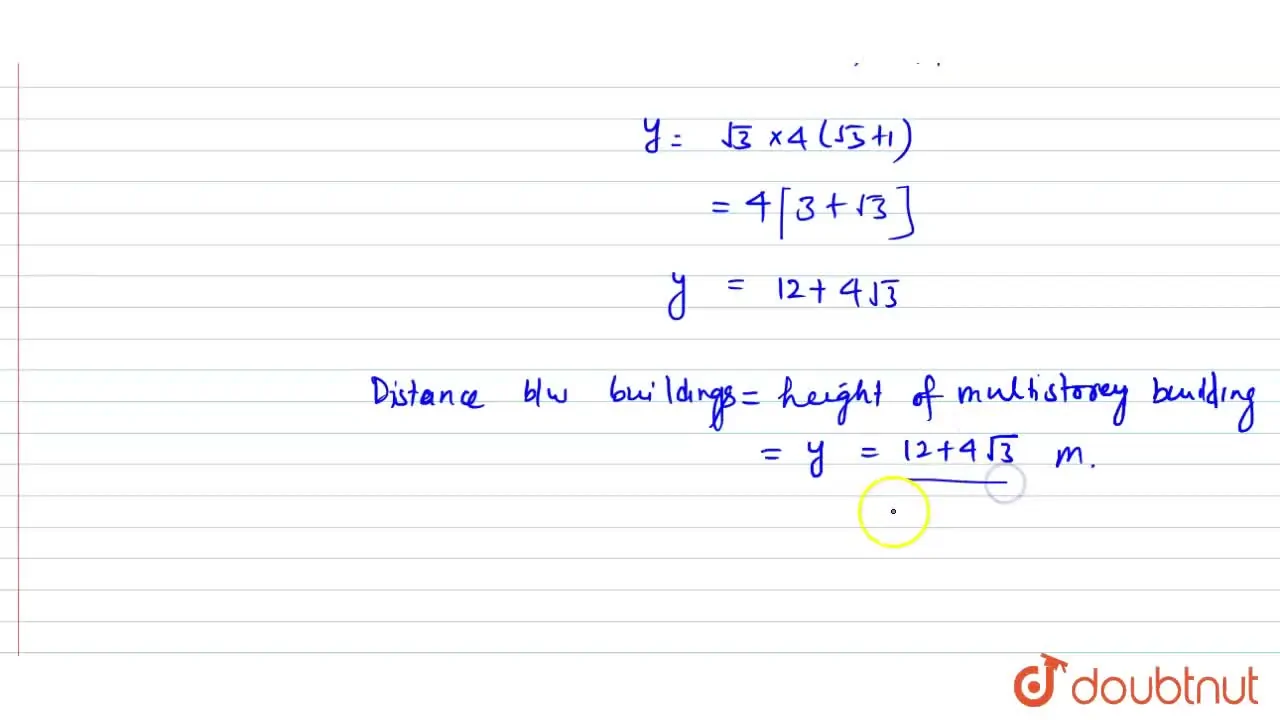 y = √3 × 4 (√3+1)
= 4[3+√3]
y = 12+ 4√3
Distance b/w buildings = height of multistorey building
= y = 12+4√3 m.
doubtnut